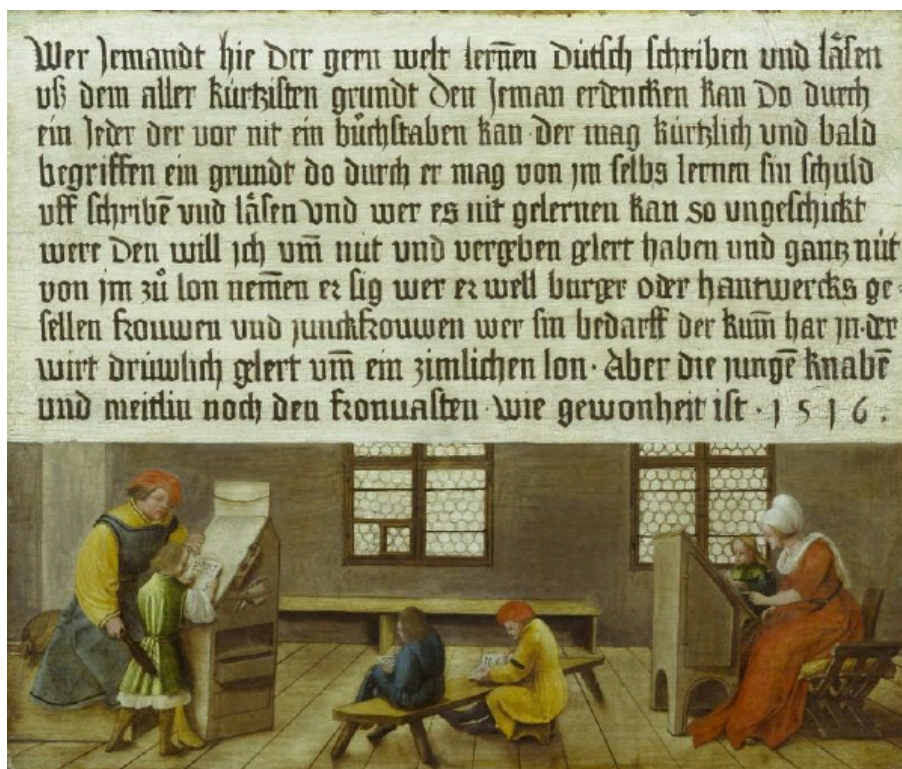 Wer Jemandt hie der gern welt lernen̄ dütsch schriben und läsen
uß dem aller kürtzisten grundt den Jeman erdencken kan Do durch
ein Jeder der vor nit ein bůchstaben kan · der mag kürtzlich und bald
begriffen ein grundt do durch er mag von jm selbs lernen sin schuld
uff schribē vnd läsen vnd wer es nit gelernen kan so ungeschickt
were Den will jch vm̄ nüt und vergeben gelert haben und gantz nüt
von jm zů lon nem̄en er sig wer er well burger oder hantwercks ge-
sellen frouwen und junckfrouwen wer sin bedarff der kum̄ har jn · der
wirt drüwlich gelert vm̄ ein zimlichen lon · Aber die jungē knabē
und meitlin noch den fronuasten · wie gewonheit ist · 1516 ·